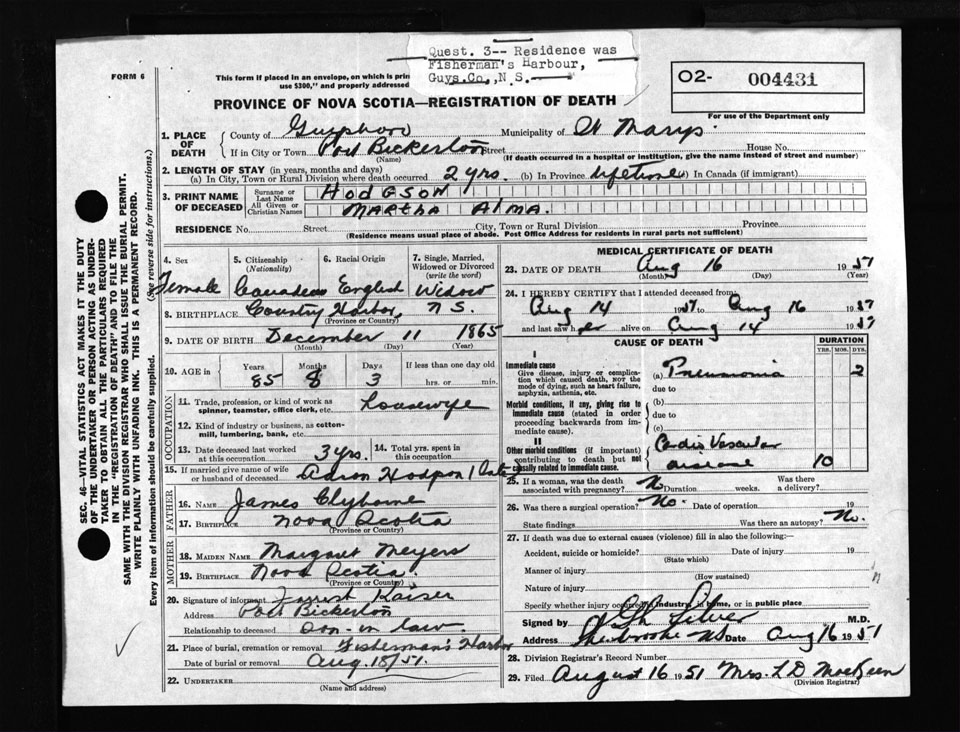 Quest. 3-- Residence was
Fisherman's Harbour,
Guys.Co.,N.S.
FORM 6
This form if placed in an envelope, on which is prin
use $300," and properly addressed
O2- 004431
For use of the Department only
PROVINCE OF NOVA SCOTIA—REGISTRATION OF DEATH
1. PLACE OF DEATH
County of Guysboro Municipality of St Marys.
If in City or Town Port Bickerton Street House No.
(Name) (If death occurred in a hospital or institution, give the name instead of street and number)
2. LENGTH OF STAY (in years, months and days)
(a) In City, Town or Rural Division where death occurred 2 yrs. (b) In Province lifetime (c) In Canada (if immigrant)
3. PRINT NAME OF DECEASED
Surname or Last Name HODGSON
All Given or Christian Names MARTHA ALMA.
RESIDENCE No. Street City, Town or Rural Division Province
(Residence means usual place of abode. Post Office Address for residents in rural parts not sufficient)
4. Sex Female
5. Citizenship (Nationality) Canadian
6. Racial Origin English
7. Single, Married, Widowed or Divorced (write the word) Widow
8. BIRTHPLACE Country Harbor, N.S.
(Province or Country)
9. DATE OF BIRTH December 11 1865
(Month) (Day) (Year)
10. AGE in Years Months Days If less than one day old
85 8 3 hrs. or min.
OCCUPATION
11. Trade, profession, or kind of work as spinner, teamster, office clerk, etc. Housewife
12. Kind of industry or business, as cotton-mill, lumbering, bank, etc.
13. Date deceased last worked at this occupation 3 yrs.
14. Total yrs. spent in this occupation
15. If married give name of wife or husband of deceased Hodgson (late)
FATHER
16. NAME James Clyburne
17. BIRTHPLACE Nova Scotia
(Province or Country)
MOTHER
18. MAIDEN NAME Margaret Meyers
19. BIRTHPLACE Nova Scotia
(Province or Country)
20. Signature of informant Forrest Kaiser
Address Port Bickerton
Relationship to deceased son-in law
21. Place of burial, cremation or removal Fisherman's Harbor
Date of burial or removal Aug. 18/51.
22. UNDERTAKER
(Name and address)
MEDICAL CERTIFICATE OF DEATH
23. DATE OF DEATH Aug 16 1951
(Month) (Day) (Year)
24. I HEREBY CERTIFY that I attended deceased from
Aug 14 1951 to Aug 16 1951
and last saw her alive on Aug 14 1951
CAUSE OF DEATH
DURATION
YRS. MOS. DYS.
I
Immediate cause
Give disease, injury or complication which caused death, NOT the mode of dying, such as heart failure, asphyxia, asthenia, etc.
(a) Pneumonia 2
due to
Morbid conditions, if any, giving rise to immediate cause (stated in order proceeding backwards from immediate cause).
(b)
due to
(c)
II
Other morbid conditions (if important) contributing to death but not causally related to immediate cause.
Cardio Vascular
disease 10
25. If a woman, was the death associated with pregnancy? No Duration weeks. Was there a delivery?
26. Was there a surgical operation? No. Date of operation 19
State findings Was there an autopsy? No.
27. If death was due to external causes (violence) fill in also the following:
Accident, suicide or homicide? Date of injury 19
(State which)
Manner of injury
(How sustained)
Nature of injury
Specify whether injury occurred in industry, in home, or in public place
Signed by Silver M.D.
Address Sherbrooke NS Date Aug 16 1951
28. Division Registrar's Record Number
29. Filed August 16 1951 Mrs. L D MacKeen
(Division Registrar)
SEC. 46—VITAL STATISTICS ACT MAKES IT THE DUTY
OF THE UNDERTAKER OR PERSON ACTING AS UNDER-
TAKER TO OBTAIN ALL THE PARTICULARS REQUIRED
IN THE "REGISTRATION OF DEATH" AND TO FILE THE
SAME WITH THE DIVISION REGISTRAR WHO SHALL ISSUE THE BURIAL PERMIT.
WRITE PLAINLY WITH UNFADING INK. THIS IS A PERMANENT RECORD.
Every item of information should be carefully supplied. (See reverse side for instructions.)